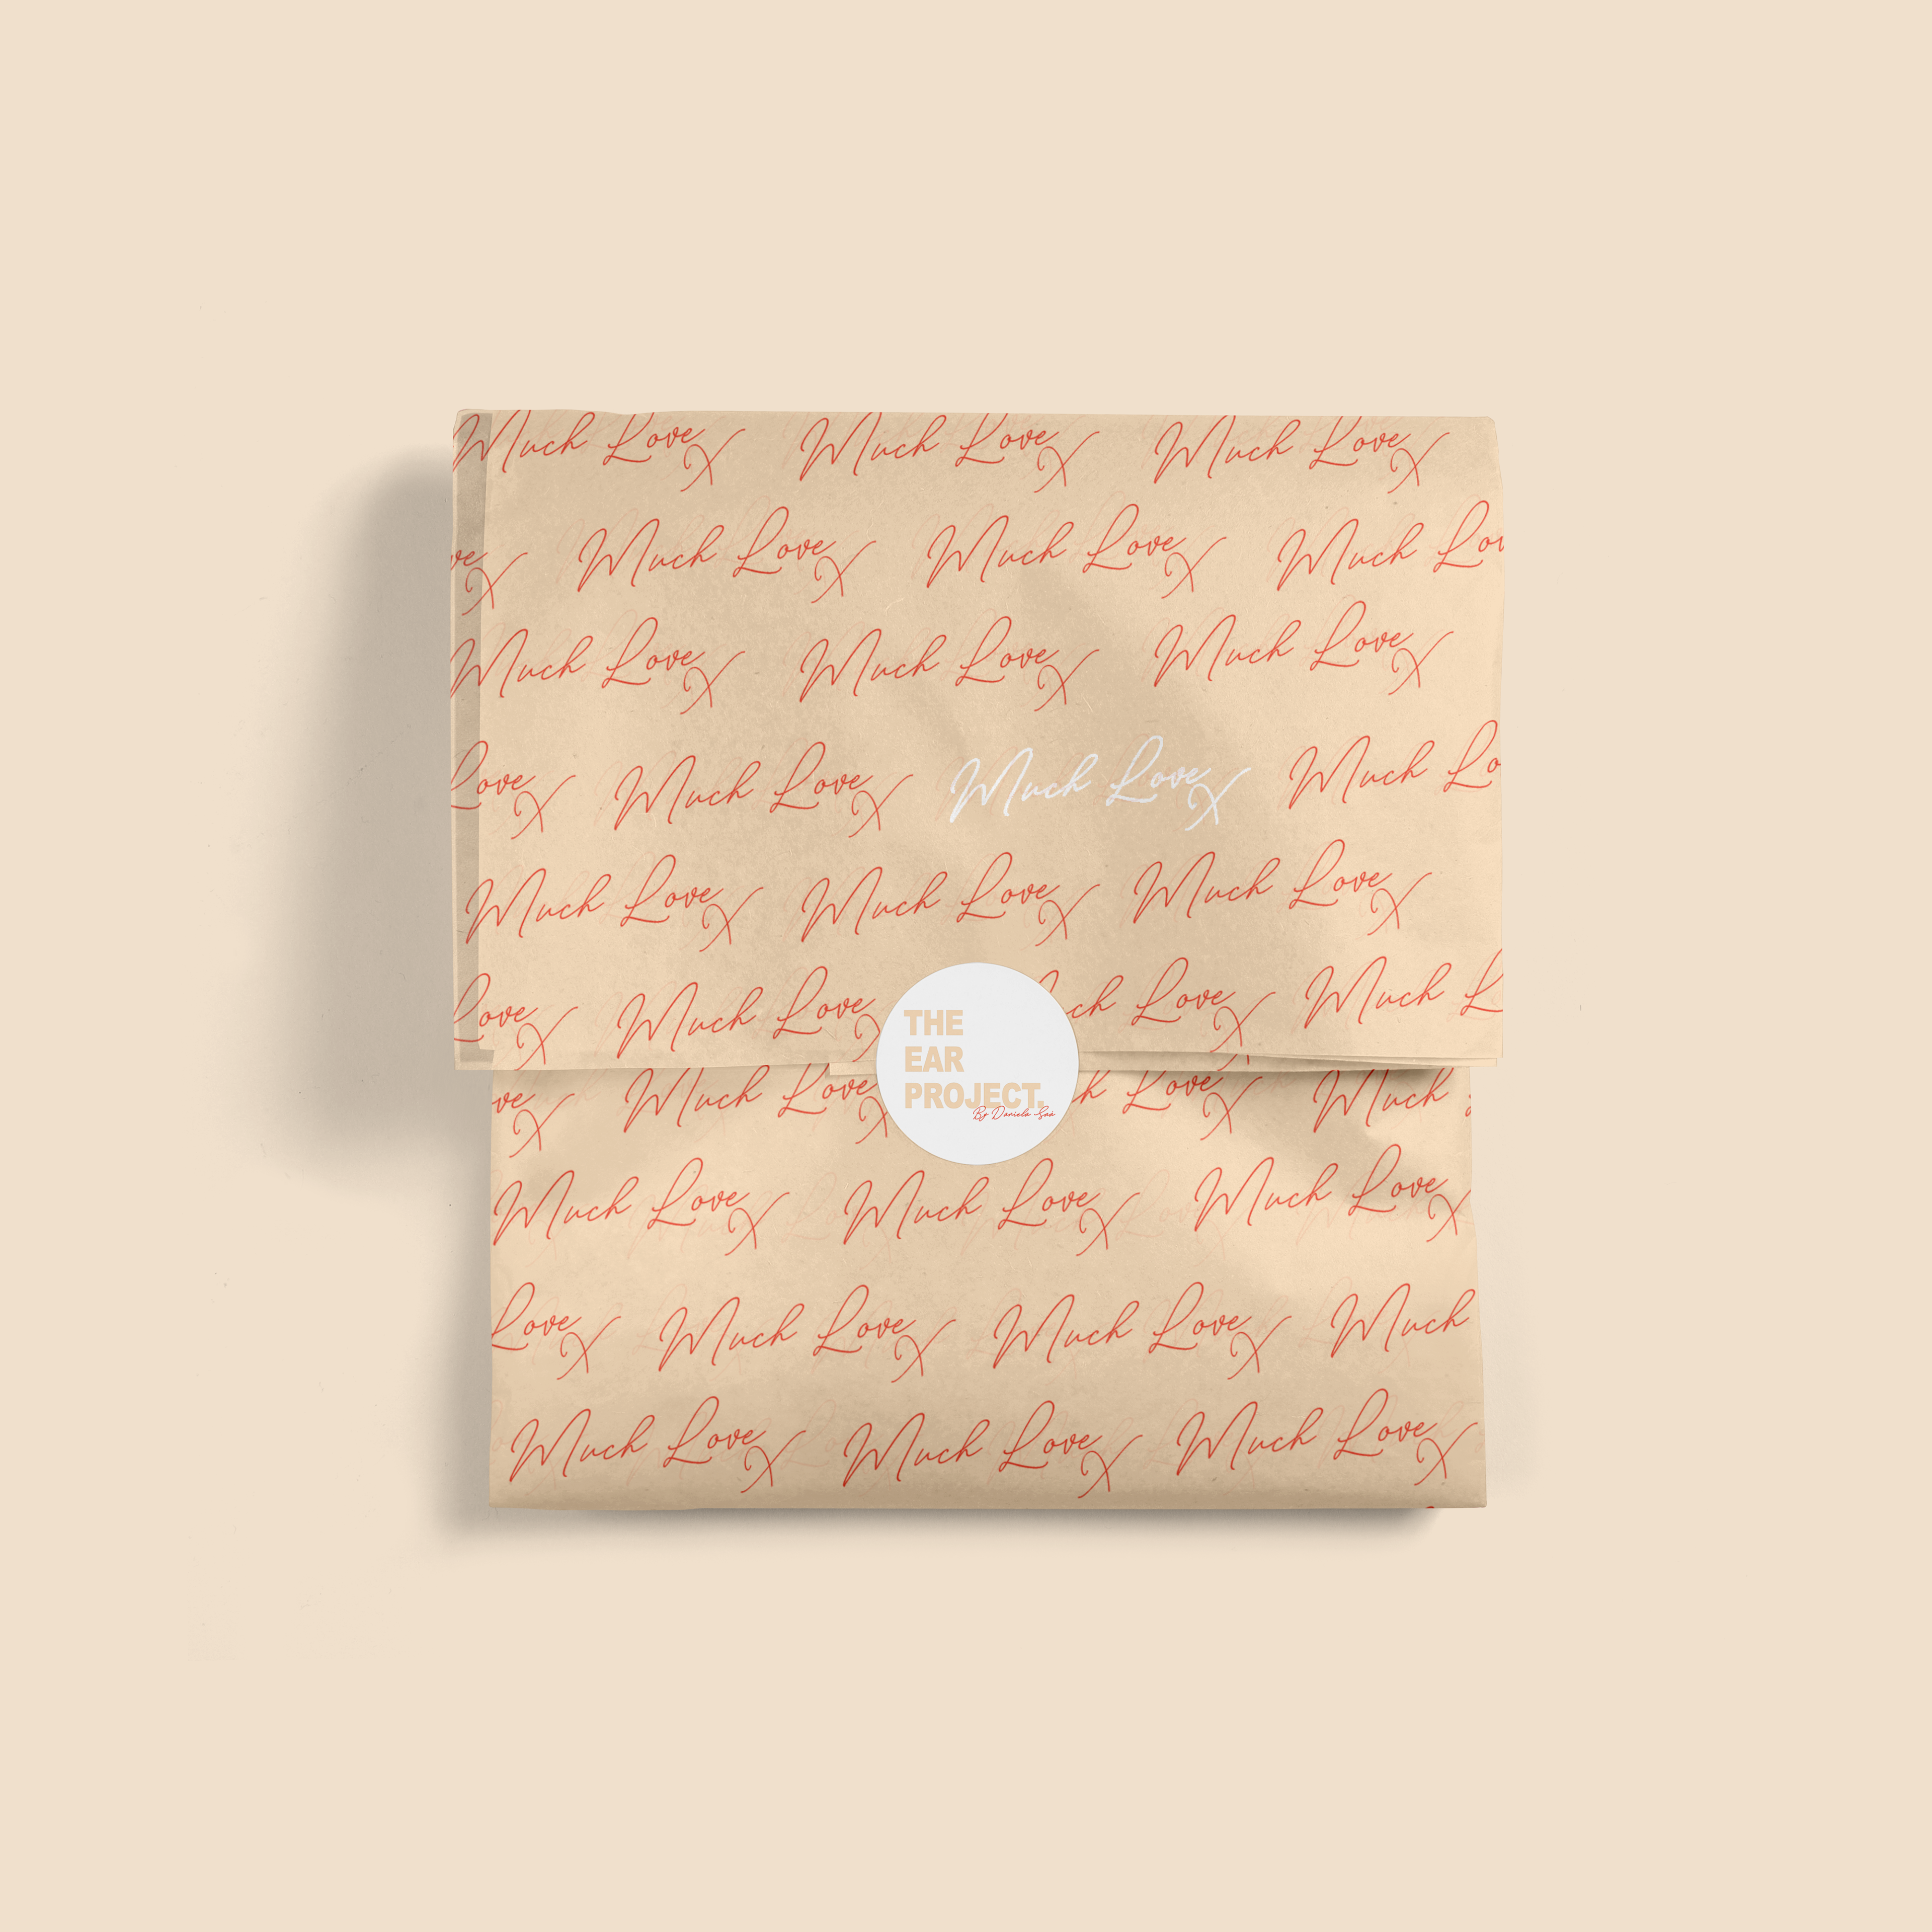 Much Love X Much Love X Much Love X
ve X Much Love X Much Love X Much Lov
Much Love X Much Love X Much Love X
Love X Much Love X Much Love X Much Lo
Much Love X Much Love X Much Love X
Love X Much Love X ch Love X Much L
THE
EAR
PROJECT.
ve X Much Love X Love X Much
Much Love X Much Love X Much Love X
Love X Much Love X Much Love X Much
Much Love X Much Love X Much Love X